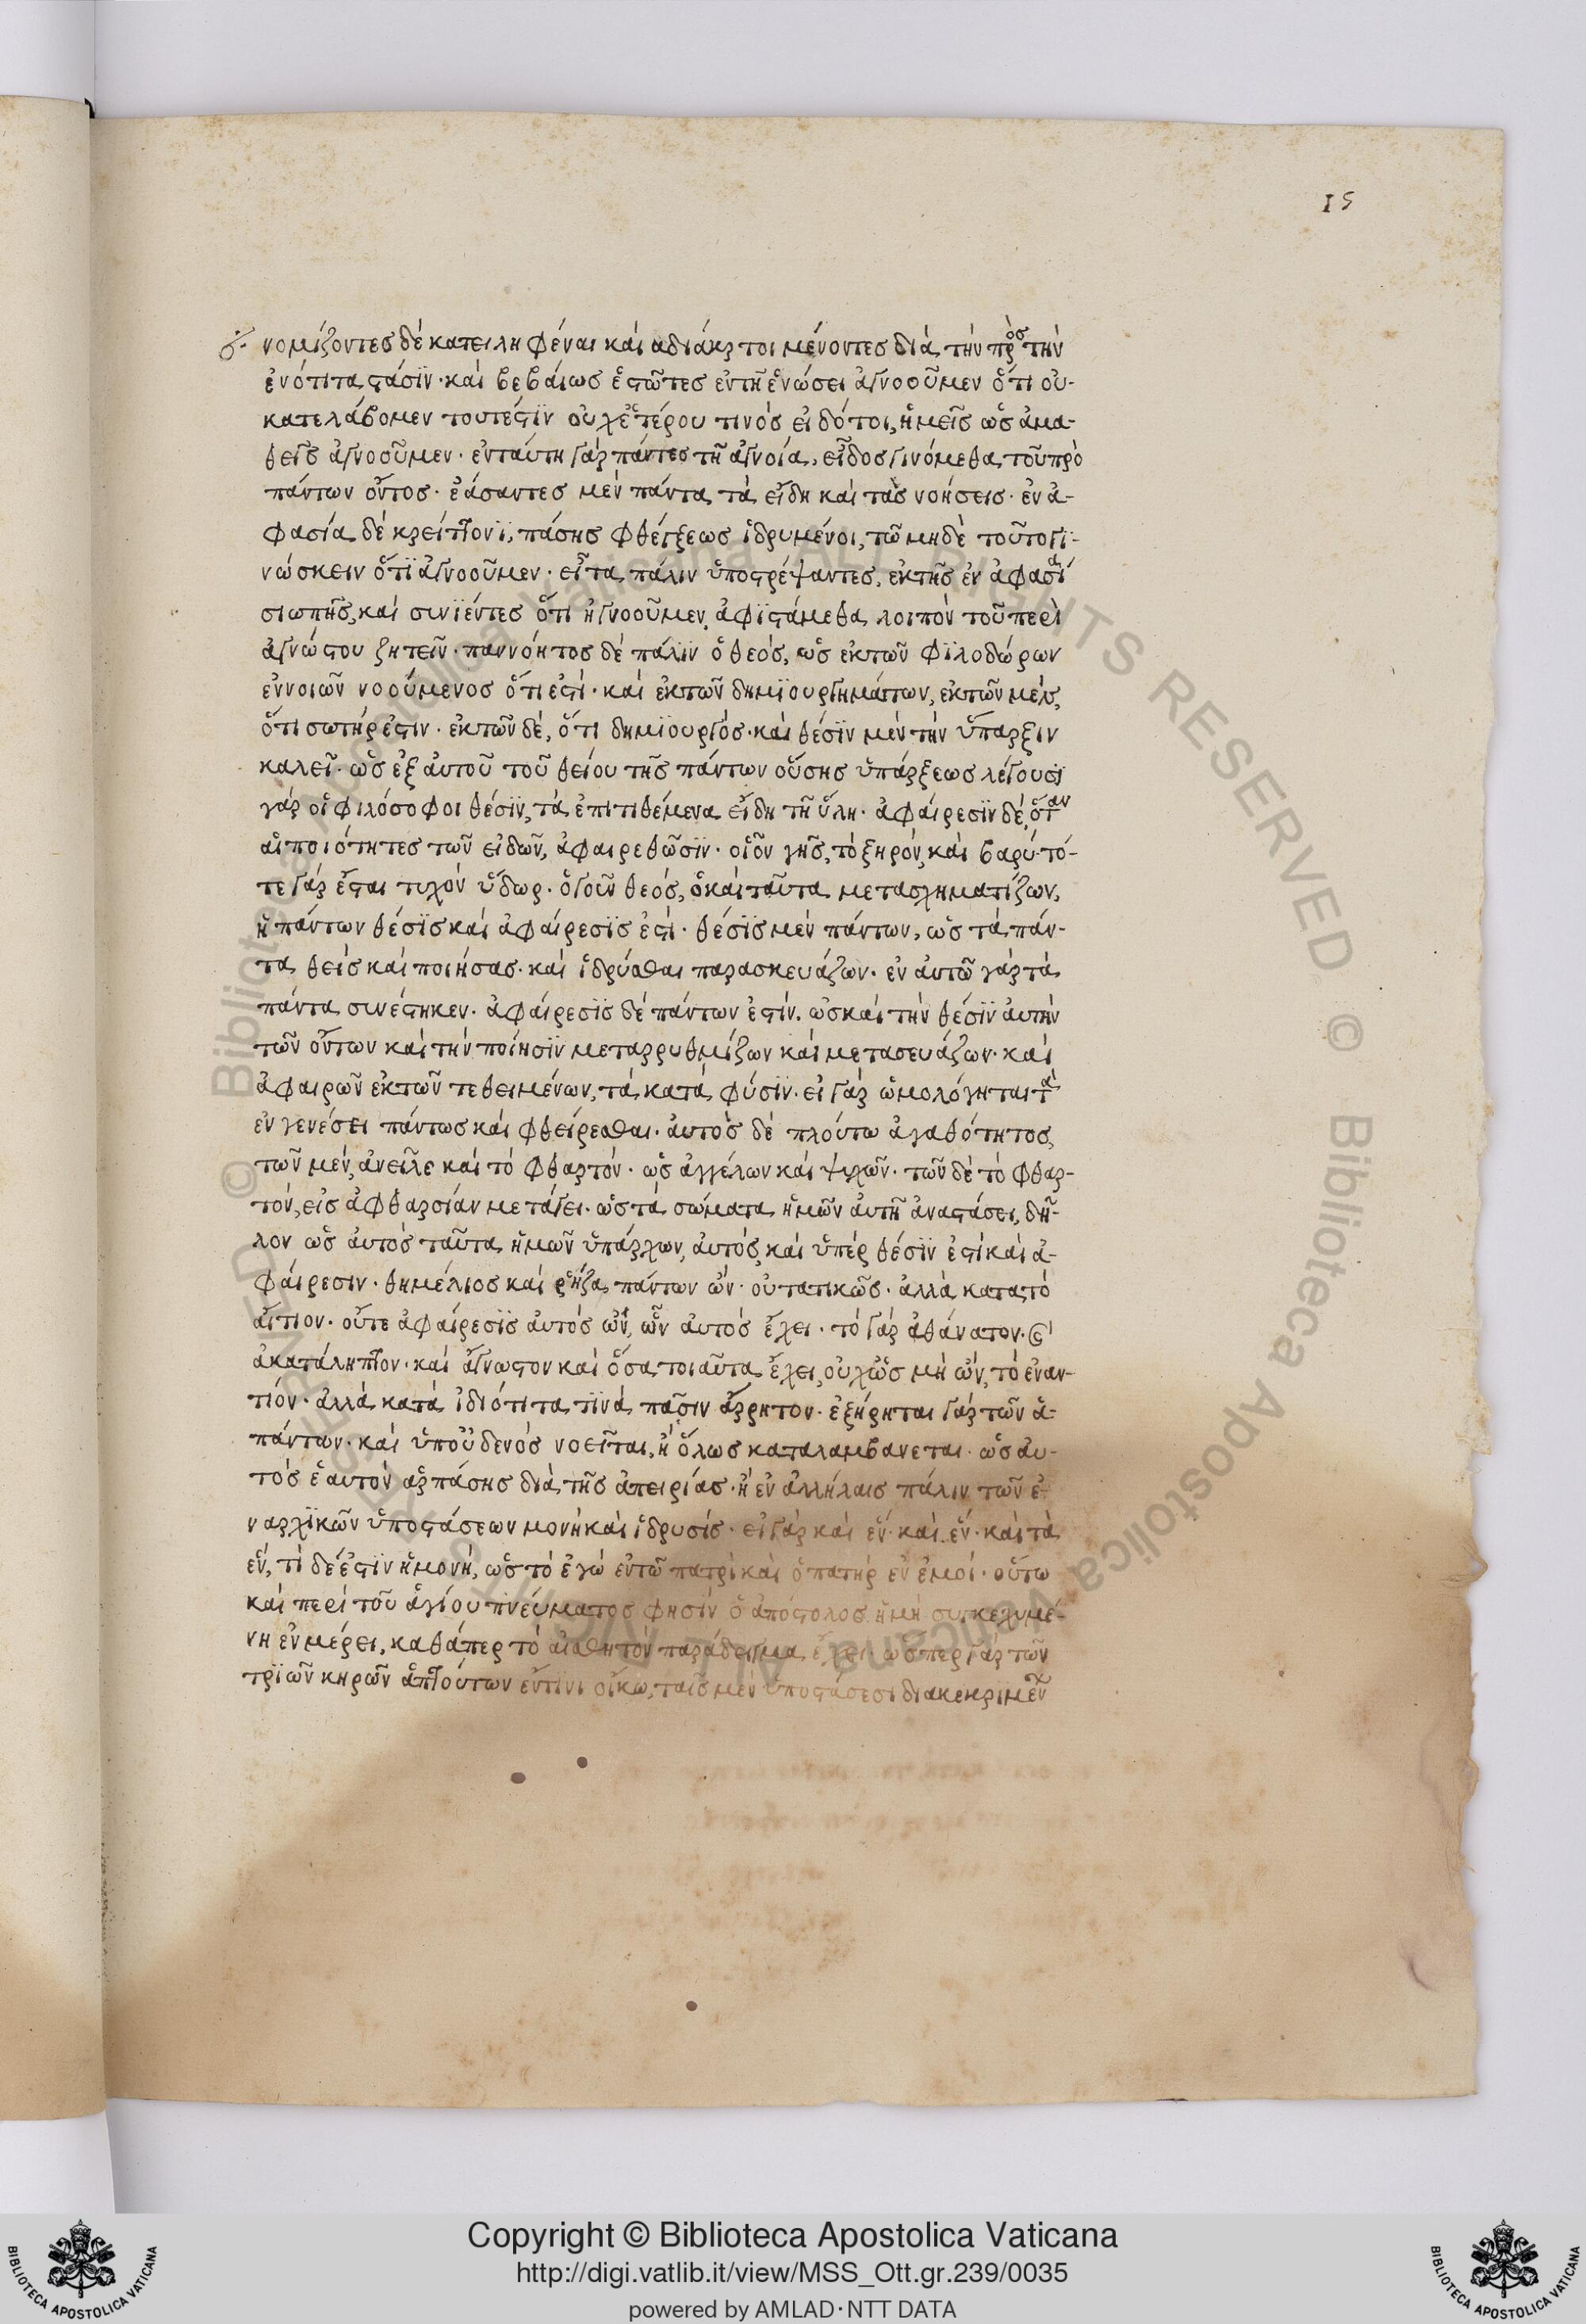 15
νομίζοντες δὲ κατειληφέναι καὶ ἀδιάκριτοι μένοντες διὰ τὴν πρὸς τὴν
ἑνότιτα στάσϊν · καὶ βεβαίως ἑστῶτες ἐν τῆ ἑνώσει ἀγνοοῦμεν ὅτι οὐ-
κατελάβομεν τουτέστϊν οὐχ ἑτέρου τινὸς εἰδότοι, ἡμεῖς ὡς ἀμα-
θεῖς ἀγνοοῦμεν · ἐν ταύτη γὰρ πάντες τῆ ἀγνοία, εἶδος γινόμεθα τοῦ πρὸ
πάντων ὄντος · ἐάσαντες μὲν πάντα τὰ εἴδη καὶ τὰς νοήσεις · ἐν ἀ-
φασία δὲ κρείττονϊ, πάσης φθέγξεως ἱδρυμένοι, τῶ μηδὲ τοῦτο γϊ-
νώσκειν ὅτϊ ἀγνοοῦμεν · εἶτα πάλιν ὑποστρέψαντες, ἐκ τῆς ἐν ἀφασία
σιωπῆς, καὶ συνϊέντες ὅτι ἠγνοοῦμεν, ἀφϊστάμεθα λοιπὸν τοῦ περὶ
ἀγνώστου ζητεῖν · παννόητος δὲ πάλϊν ὁ θεός, ὡς ἐκ τῶν φϊλοδώρων
ἐννοιῶν νοούμενος ὅτι ἐστί · καὶ ἐκ τῶν δημϊουργημάτων, ἐκ τῶν μὲν,
ὅτι σωτήρ ἐστιν · ἐκ τῶν δὲ, ὅτι δημϊουργός · καὶ θέσϊν μὲν τὴν ὕπαρξιν
καλεῖ · ὡς ἐξ αὐτοῦ τοῦ θείου τῆς πάντων οὔσης ὑπάρξεως λέγουσϊ
γὰρ οἱ φιλόσοφοι θέσϊν, τὰ ἐπιτιθέμενα εἴδη τῆ ὕλη · ἀφαίρεσϊν δὲ, ὅταν
αἱ ποιότητες τῶν εἰδῶν, ἀφαιρεθῶσϊν · οἷον γῆς, τὸ ξηρόν, καὶ βαρύ · τό-
τε γὰρ ἔσται τυχὸν ὕδωρ · ὁ γοῦν θεός, ὁ καὶ ταῦτα μετασχηματίζων,
ἡ πάντων θέσϊς καὶ ἀφαίρεσϊς ἐστί · θέσϊς μὲν πάντων, ὡς τὰ πάν-
τα θεὶς καὶ ποιήσας · καὶ ἱδρύσθαι παρασκευάζων · ἐν αὐτῶ γὰρ τὰ
πάντα συνέστηκεν · ἀφαίρεσϊς δὲ πάντων ἐστίν. ὡς καὶ τὴν θέσϊν αὐτὴν
τῶν ὄντων καὶ τὴν ποίησϊν μεταρρυθμίζων καὶ μετασευάζων · καὶ
ἀφαιρῶν ἐκ τῶν τεθειμένων, τὰ κατὰ φύσϊν · εἰ γὰρ ὡμολόγηται τὰ
ἐν γενέσει πάντως καὶ φθείρεσθαι · αὐτὸς δὲ πλούτω ἀγαθότητος,
τῶν μὲν, ἀνεῖλε καὶ τὸ φθαρτόν · ὡς ἀγγέλων καὶ ψυχῶν · τῶν δὲ τὸ φθαρ-
τόν, εἰς ἀφθαρσίαν μετάγει · ὡς τὰ σώματα ἡμῶν αὐτῆ ἀναστάσει, δῆ-
λον ὡς αὐτὸς ταῦτα ἡμῶν ὑπάρχων, αὐτὸς καὶ ὑπὲρ θέσϊν ἐστὶ καὶ ἀ-
φαίρεσιν · θημέλιος καὶ ρήζα πάντων ὤν · οὐ τατικῶς · ἀλλὰ κατὰ τὸ
αἴτιον · οὔτε ἀφαίρεσϊς αὐτὸς ὤν, ὧν αὐτὸς ἔχει · τὸ γὰρ ἀθάνατον · καὶ
ἀκατάληπτον · καὶ ἄγνωστον καὶ ὅσα τοιαῦτα ἔχει, οὐχ ὡς μὴ ὤν, τὸ ἐναν-
τίον · ἀλλὰ κατὰ ἰδιότιτα τϊνὰ πᾶσιν ἄρρητον · ἐξήρηται γὰρ τῶν ἁ-
πάντων · καὶ ὑπ' οὐδενὸς νοεῖται, ἢ ὅλως καταλαμβανεται · ὡς αὐ-
τὸς ἑαυτὸν αρπάσης διὰ τῆς ἀπειρίας · ἡ ἐν ἀλλήλαις πάλιν τῶν ἑ-
ναρχϊκῶν ὑποστάσεων μονὴ καὶ ἵδρυσίς · εἰ γὰρ καὶ ἕν · καὶ ἕν · καὶ τὰ
ἕν, τί δέ ἐστϊν ἡ μονή, ὡς τὸ ἐγὼ ἐν τῶ πατρὶ καὶ ὁ πατὴρ ἐν ἐμοί · οὕτω
καὶ περὶ τοῦ ἁγίου πνεύματος φησὶν ὁ ἀπόστολος ἡ μὴ συγκεχυμέ-
νη ἐν μέρει, καθάπερ τὸ αἰσθητὸν παράδειγμα ἔχει · ὥσπερ γὰρ τῶν
τρϊῶν κηρῶν ἁπτόντων ἔν τινι οἴκω, ταῖς μὲν ὑποστάσεσι διακεκριμένων
Copyright © Biblioteca Apostolica Vaticana
http://digi.vatlib.it/view/MSS_Ott.gr.239/0035
powered by AMLAD·NTT DATA